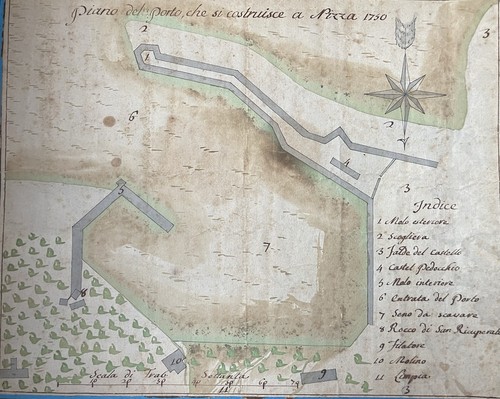 Piano del Porto, che si costruisce a Nizza 1750
2
3
1
2
6
4
5
3
7
8
Indice
1 Molo esteriore
2 Scogliera
3 Falde del Castello
4 Castel Pedocchio
5 Molo interiore
6 Entrata del Porto
7 Seno da scavare
8 Rocco di San Recuperato
9 Filatore
10 Molino
11 Limpia
3
10
9
Scala di Trab. Settanta
11